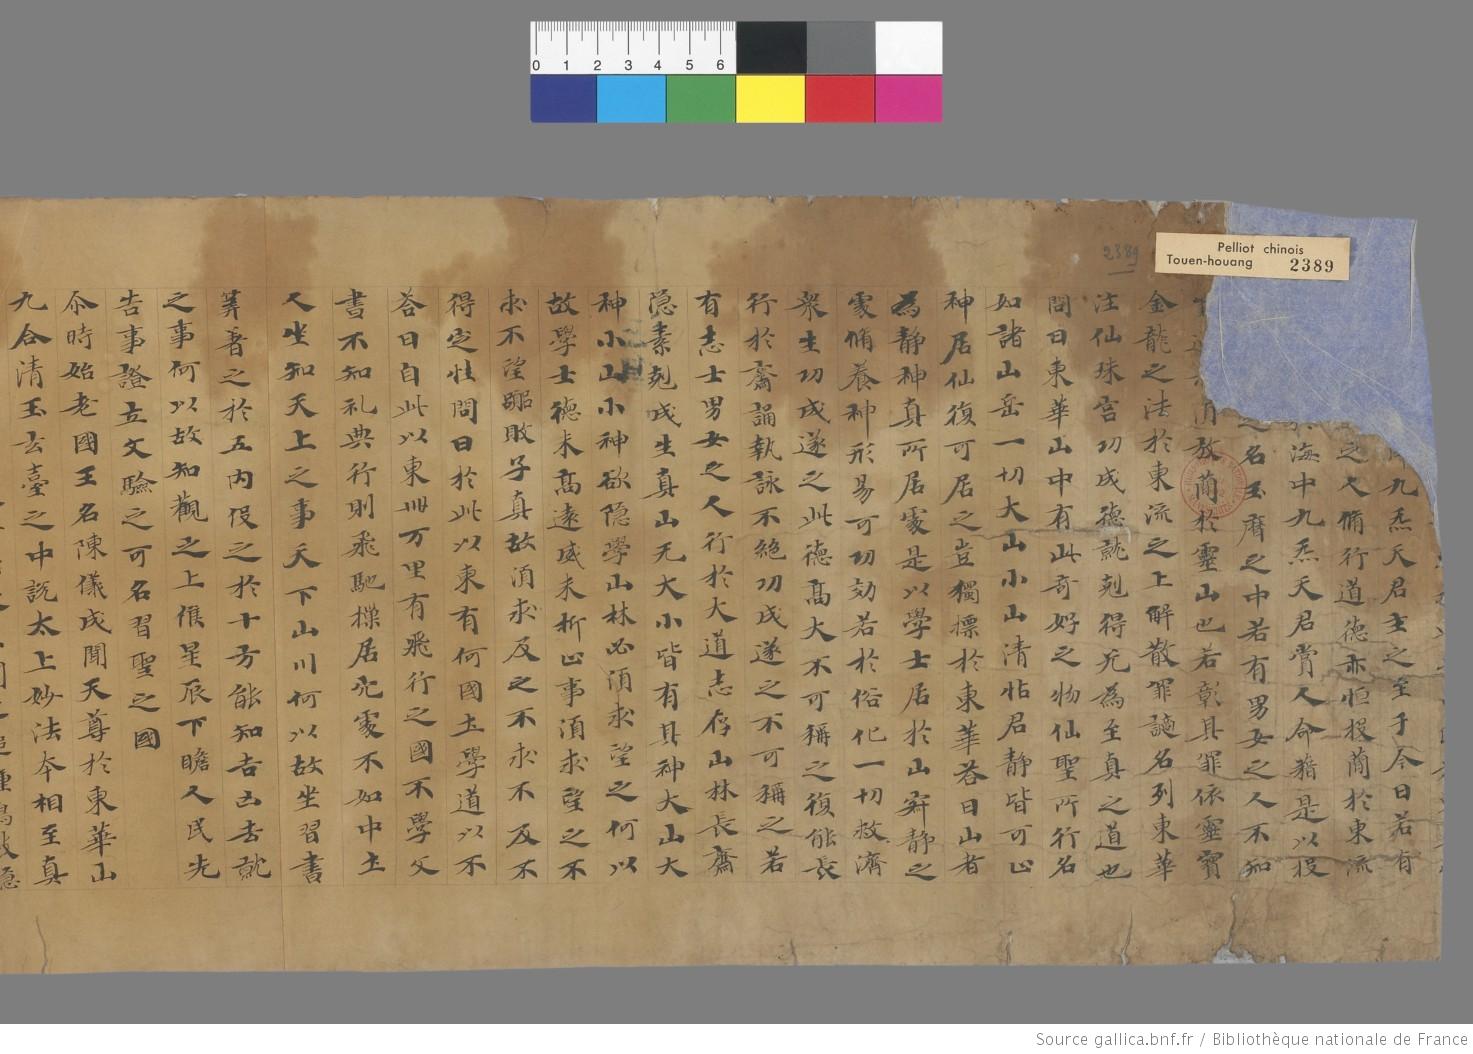 0 1 2 3 4 5 6
Pelliot chinois
Touen-houang 2389
2389
九炁天君主之至于今日若有
之人脩行道德亦恒投蕳於東流
海中九炁天君賞人命籍是以投
之名玉曆之中若有男女之人不知
投蕳於靈山也若彰其罪依靈寶
金龍之法於東流之上解散罪謫名列東華
注仙珠宮功成德就剋得无為至真之道也
問曰東華山中有此奇好之物仙聖所行名
如諸山岳一切大山小山清怗君靜皆可止
神居仙復可居之豈獨摽於東華荅曰山者
為靜神真所居䖏是以學士居於山窈靜之
䖏脩養神形易可功効若於俗化一切救濟
衆生功成遂之此德髙大不可稱之復能長
行於齋誦執詠不絶功成遂之不可稱之若
有志士男女之人行於大道志存山林長齋
隱素剋成生真山无大小皆有其神大山大
神小山小神欲隱學山林必須求望之何以
故學士德未髙遠感未折止事須求望之不
求不望即敗子真故須求及之不求不及不
得定性問曰於此以東有何國土學道以不
荅曰自此以東卌万里有飛行之國不學文
書不知礼典行則飛馳樔居穴䖏不如中土
人坐知天上之事天下山川何以故坐習書
筭著之於五內伇之於十方能知吉凶去就
之事何以故知觀之上㑋星辰下瞻人民先
吉事證立文驗之可名習聖之國
尒時始老國王名陳儀成聞天尊於東華山
九合清玉玄臺之中説太上妙法夲相至真
Source gallica.bnf.fr / Bibliothèque nationale de France